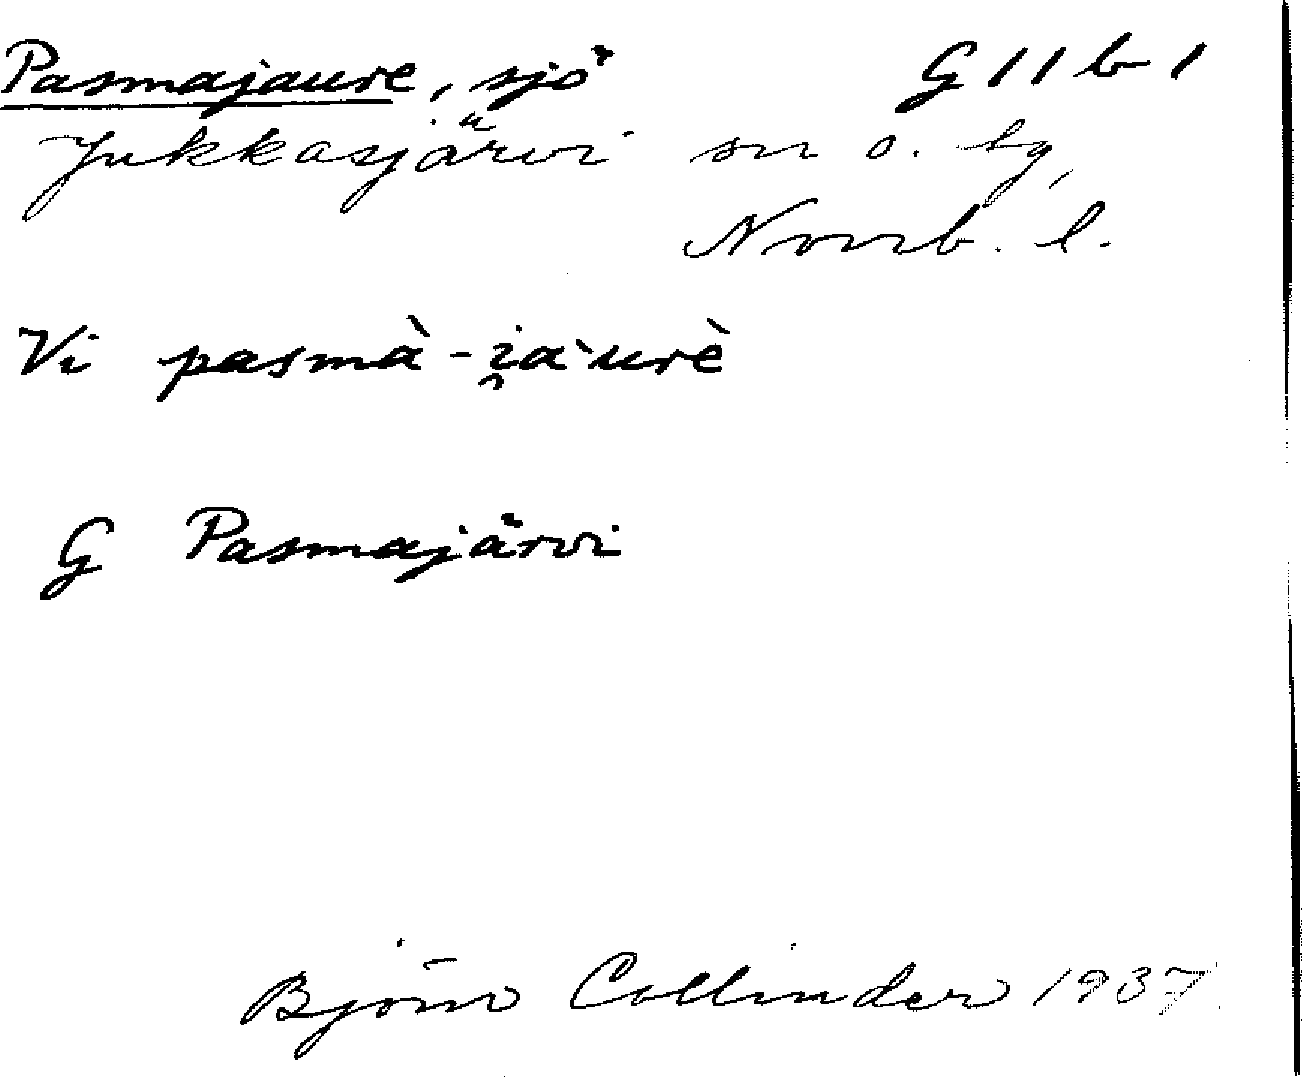 Pasmajaure, sjö G 11 b 1
Jukkasjärvi sn o. tg,
Norrb. l.
Vi pasmà-i̯a`urè
G Pasmajärvi
Björn Collinder 1937